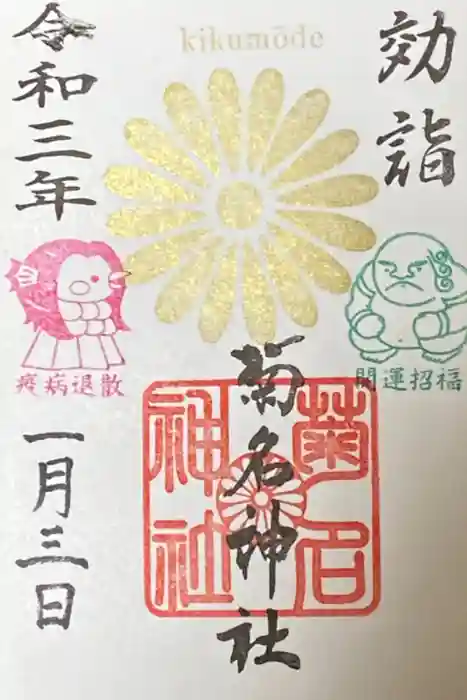 kikumōde
効詣
菊名神社
令和三年
一月三日
疫病退散
開運招福
菊名
神社